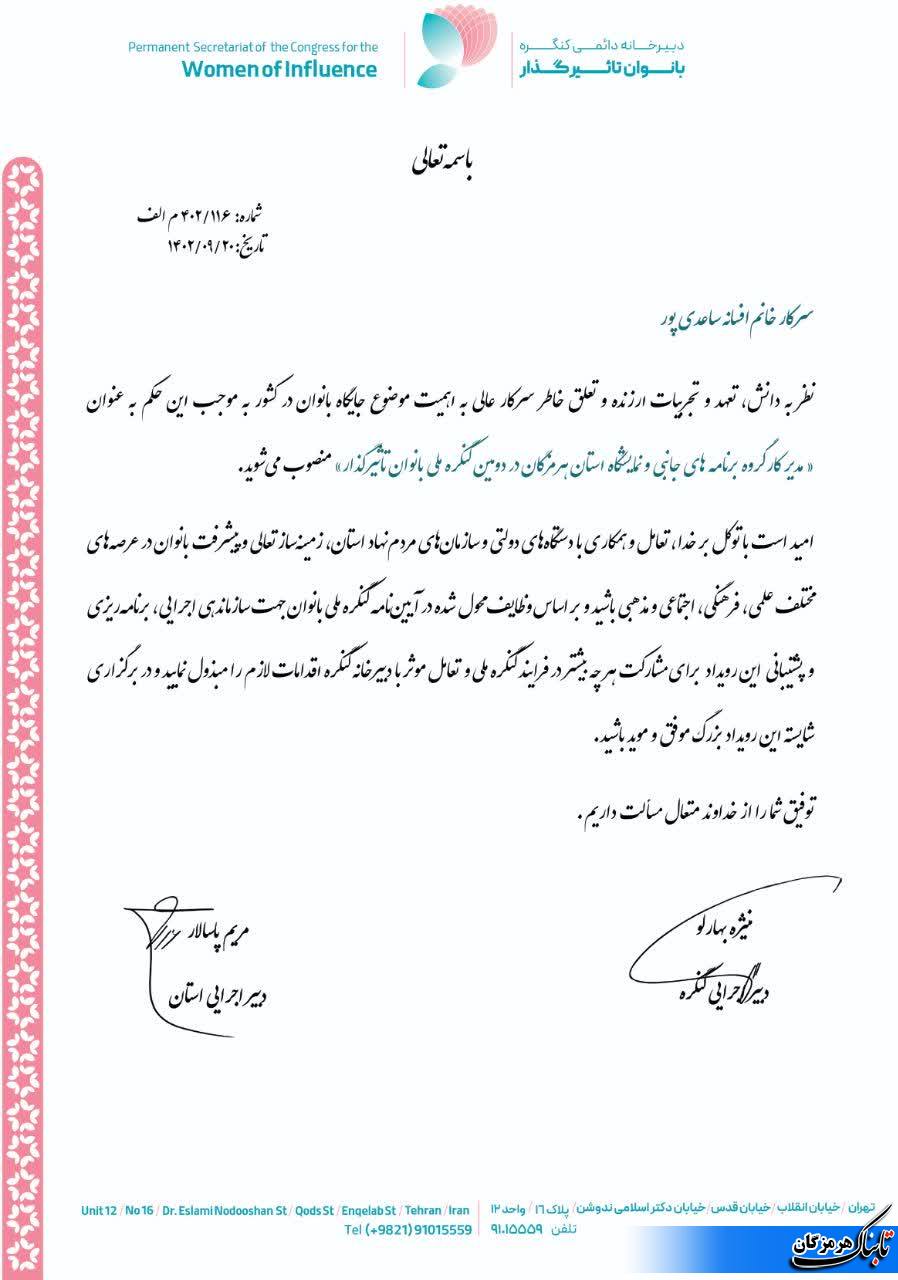 Permanent Secretariat of the Congress for the
Women of Influence
دبیرخانه دائمی کنگره
بانوان تاثیرگذار
باسمه تعالی
شماره: ۴۰۲/۱۱۶ م الف
تاریخ: ۱۴۰۲/۰۹/۲۰
سرکار خانم افسانه ساعدی پور
نظر به دانش، تعهد و تجربیات ارزنده و تعلق خاطر سرکار عالی به اهمیت موضوع جایگاه بانوان در کشور به موجب این حکم به عنوان
« مدیر کارگروه برنامه های جانبی و نمایشگاه استان هرمزگان در دومین کنگره ملی بانوان تأثیرگذار» منصوب می‌شوید.
امید است با توکل بر خدا، تعامل و همکاری با دستگاه‌های دولتی و سازمان‌های مردم نهاد استان، زمینه‌ساز تعالی و پیشرفت بانوان در عرصه‌های
مختلف علمی، فرهنگی، اجتماعی و مذهبی باشید و بر اساس وظایف محول شده در آیین‌نامه کنگره ملی بانوان جهت سازماندهی اجرایی، برنامه‌ریزی
و پشتیبانی این رویداد برای مشارکت هرچه بیشتر در فرایند کنگره ملی و تعامل موثر با دبیرخانه کنگره اقدامات لازم را مبذول نمایید و در برگزاری
شایسته این رویداد بزرگ موفق و موید باشید.
توفیق شما را از خداوند متعال مسألت داریم .
منیژه بهارلو
دبیر اجرایی کنگره
مریم پاسالار
دبیر اجرایی استان
تهران / خیابان انقلاب / خیابان قدس / خیابان دکتر اسلامی ندوشن / پلاک ۱۶ / واحد ۱۲
تلفن ۹۱۰۱۵۵۵۹
Unit 12 / No 16 / Dr. Eslami Nodooshan St / Qods St / Enqelab St / Tehran / Iran
Tel (+9821) 91015559
تابناک هرمزگان